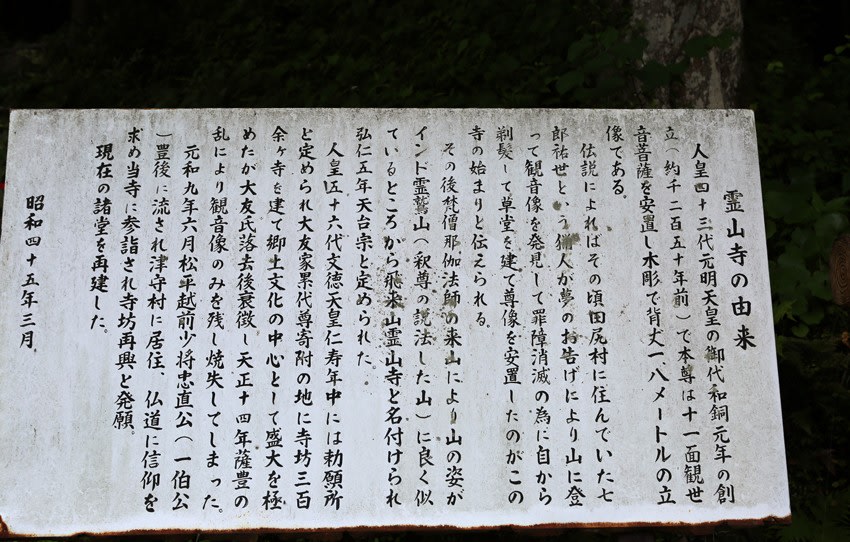 霊山寺の由来
人皇四十三代元明天皇の御代和銅元年の創
立（約千二百五十年前）で本尊は十一面観世
音菩薩を安置し木彫で背丈一、八メートルの立
像である。
伝説によればその頃田尻村に住んでいた七
郎祐世という猟人が夢のお告げにより山に登
って観音像を発見して罪障消滅の為に自から
剃髪して草堂を建て尊像を安置したのがこの
寺の始まりと伝えられる。
その後梵僧那伽法師の来山により山の姿が
インド霊鷲山（釈尊の説法した山）に良く似
ているところから飛来山霊山寺と名付けられ
弘仁五年天台宗と定められた。
人皇五十六代文徳天皇仁寿年中には勅願所
と定められ大友家累代尊寄附の地に寺坊三百
余ヶ寺を建て郷土文化の中心として盛大を極
めたが大友氏落去後衰微し天正十四年薩豊の
乱により観音像のみを残し焼失してしまった。
元和九年六月松平越前少将忠直公（一伯公
）豊後に流され津守村に居住、仏道に信仰を
求め当寺に参詣され寺坊再興と発願。
現在の諸堂を再建した。
昭和四十五年三月。